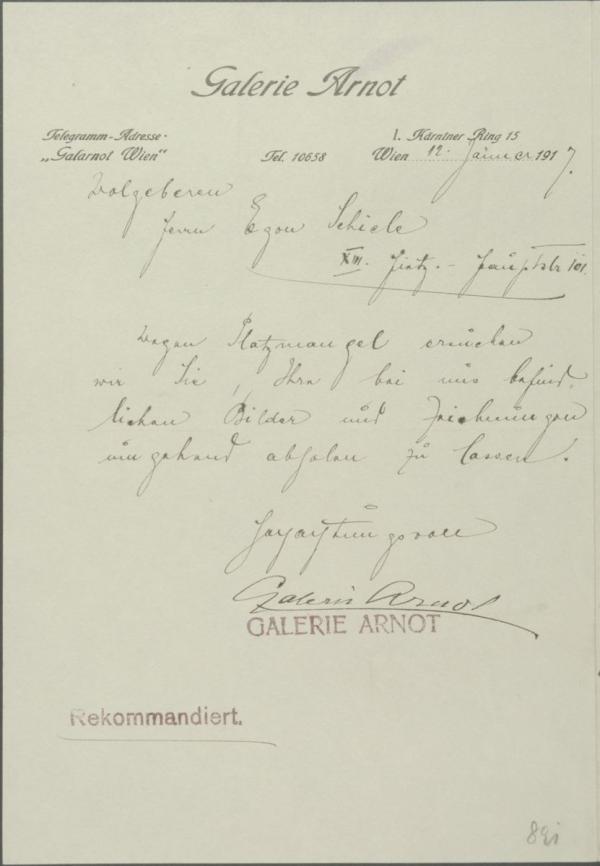 Galerie Arnot
Telegramm-Adresse
„Galarnot Wien"
Tel. 10658
I. Kärntner Ring 15
Wien 12. Jänner 1917.
Wolgeboren
Herrn Egon Schiele
XIII. Hietz. - Hauptstr 101.
Wegen Platzmangel ersuchen
wir Sie, Ihre bei uns befind-
lichen Bilder und Zeichnungen
umgehend abholen zu lassen.
Hochachtungsvoll
Galerie Arnot
GALERIE ARNOT
Rekommandiert.